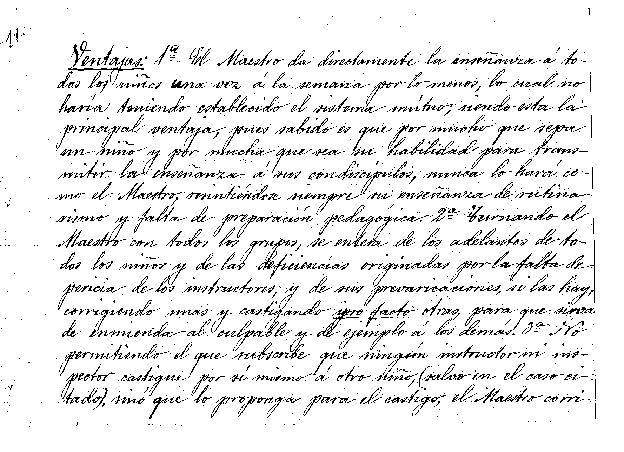 Ventajas: 1ª El Maestro da directamente la enseñanza á to-
dos los niños una vez á la semana por lo menos, lo cual no
haría teniendo establecido el sistema mutuo; siendo esta la
principal ventaja, pues sabido es que por mucho que sepa
un niño y por mucha que sea su habilidad para trans-
mitir la enseñanza á sus condiscípulos, nunca lo hará co-
mo el Maestro, resintiéndose siempre su enseñanza de rutina-
rismo y falta de preparación pedagógica. 2ª Turnando el
Maestro con todos los grupos, se entera de los adelantos de to-
dos los niños y de las deficiencias originadas por la falta de
pericia de los instructores, y de sus prevaricaciones, si las hay,
corrigiendo unas y castigando ipso facto otras, para que sirva
de enmienda al culpable y de ejemplo á los demas. 3ª No
permitiendo el que subscribe que ningún instructor ni ins-
pector castigue por sí mismo á otro niño, (salvo en el caso ci-
tado), sinó que lo proponga para el castigo, el Maestro corri-